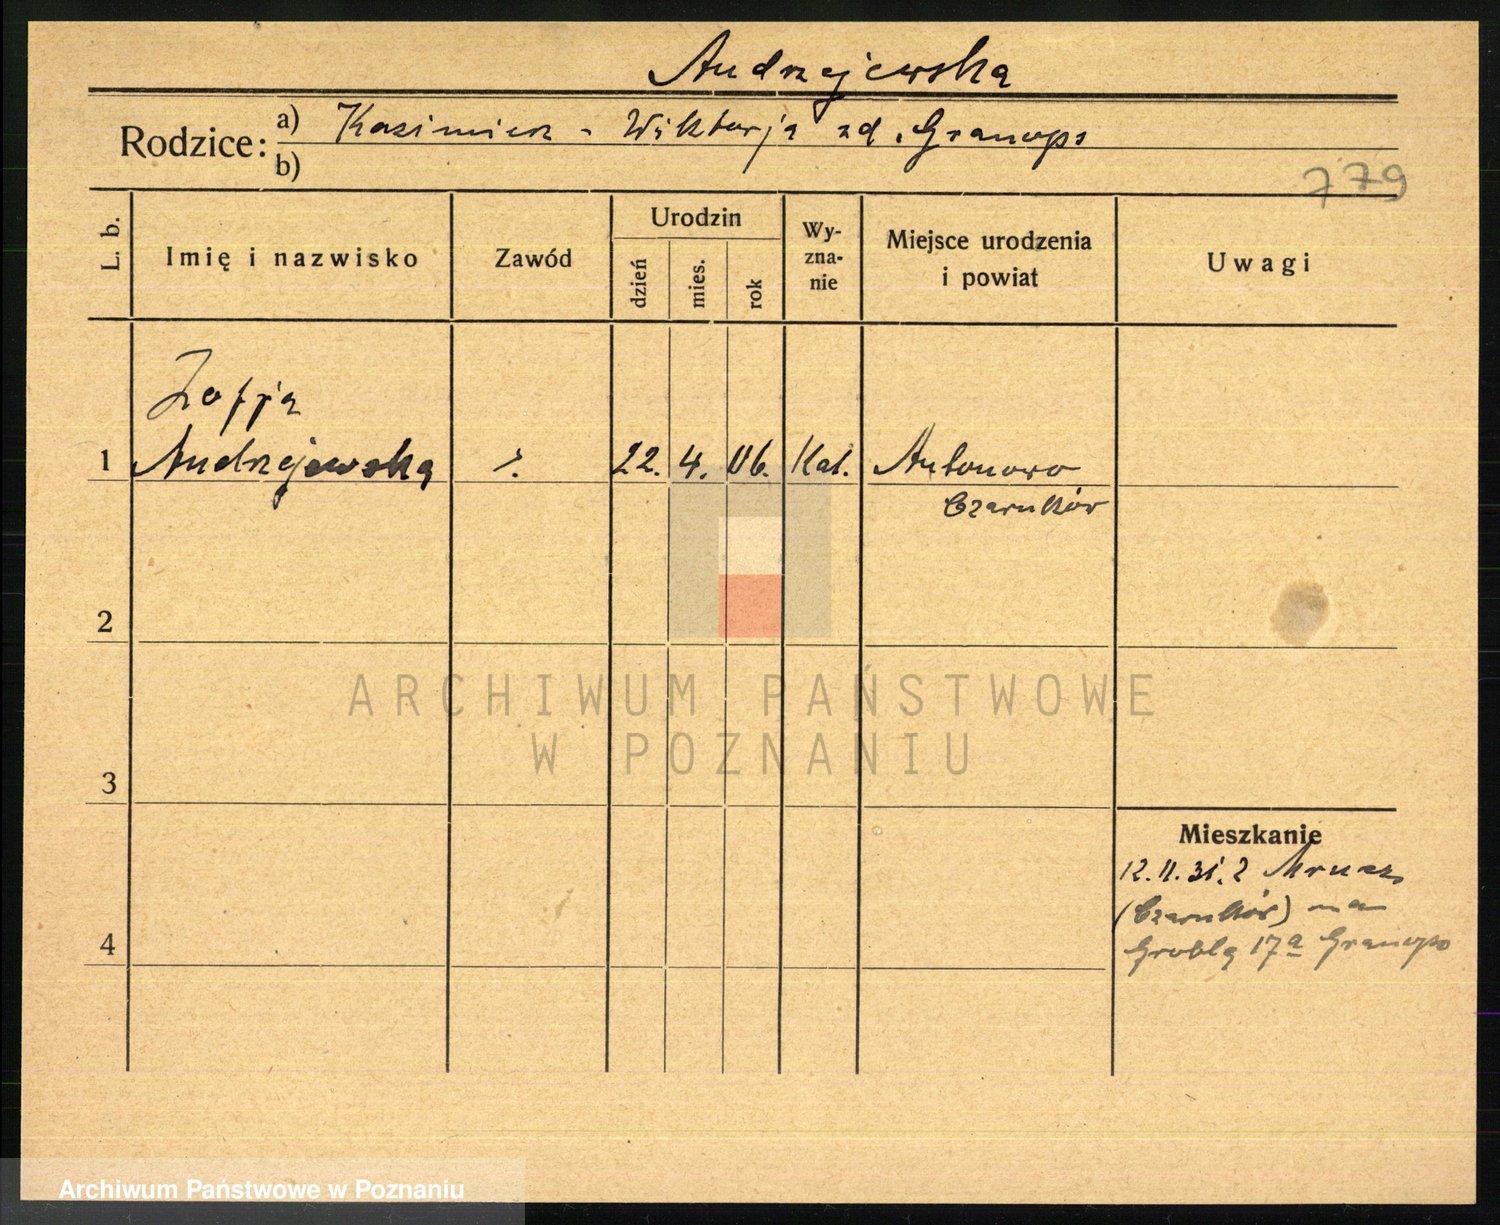 Andrzejewska
Rodzice: a) Kazimierz - Wiktorja zd. Granops
b)
779
L. b.
Imię i nazwisko
Zawód
Urodzin
dzień
mies.
rok
Wy-
zna-
nie
Miejsce urodzenia
i powiat
Uwagi
Zofja
1 Andrzejewska 22. 4. 06. Kat. Antonowo
Czarnków
2
ARCHIWUM PAŃSTWOWE
W POZNANIU
3
Mieszkanie
12.11.31. z
(Czarnków) na
4
Groblą 17a Granops
Archiwum Państwowe w Poznaniu